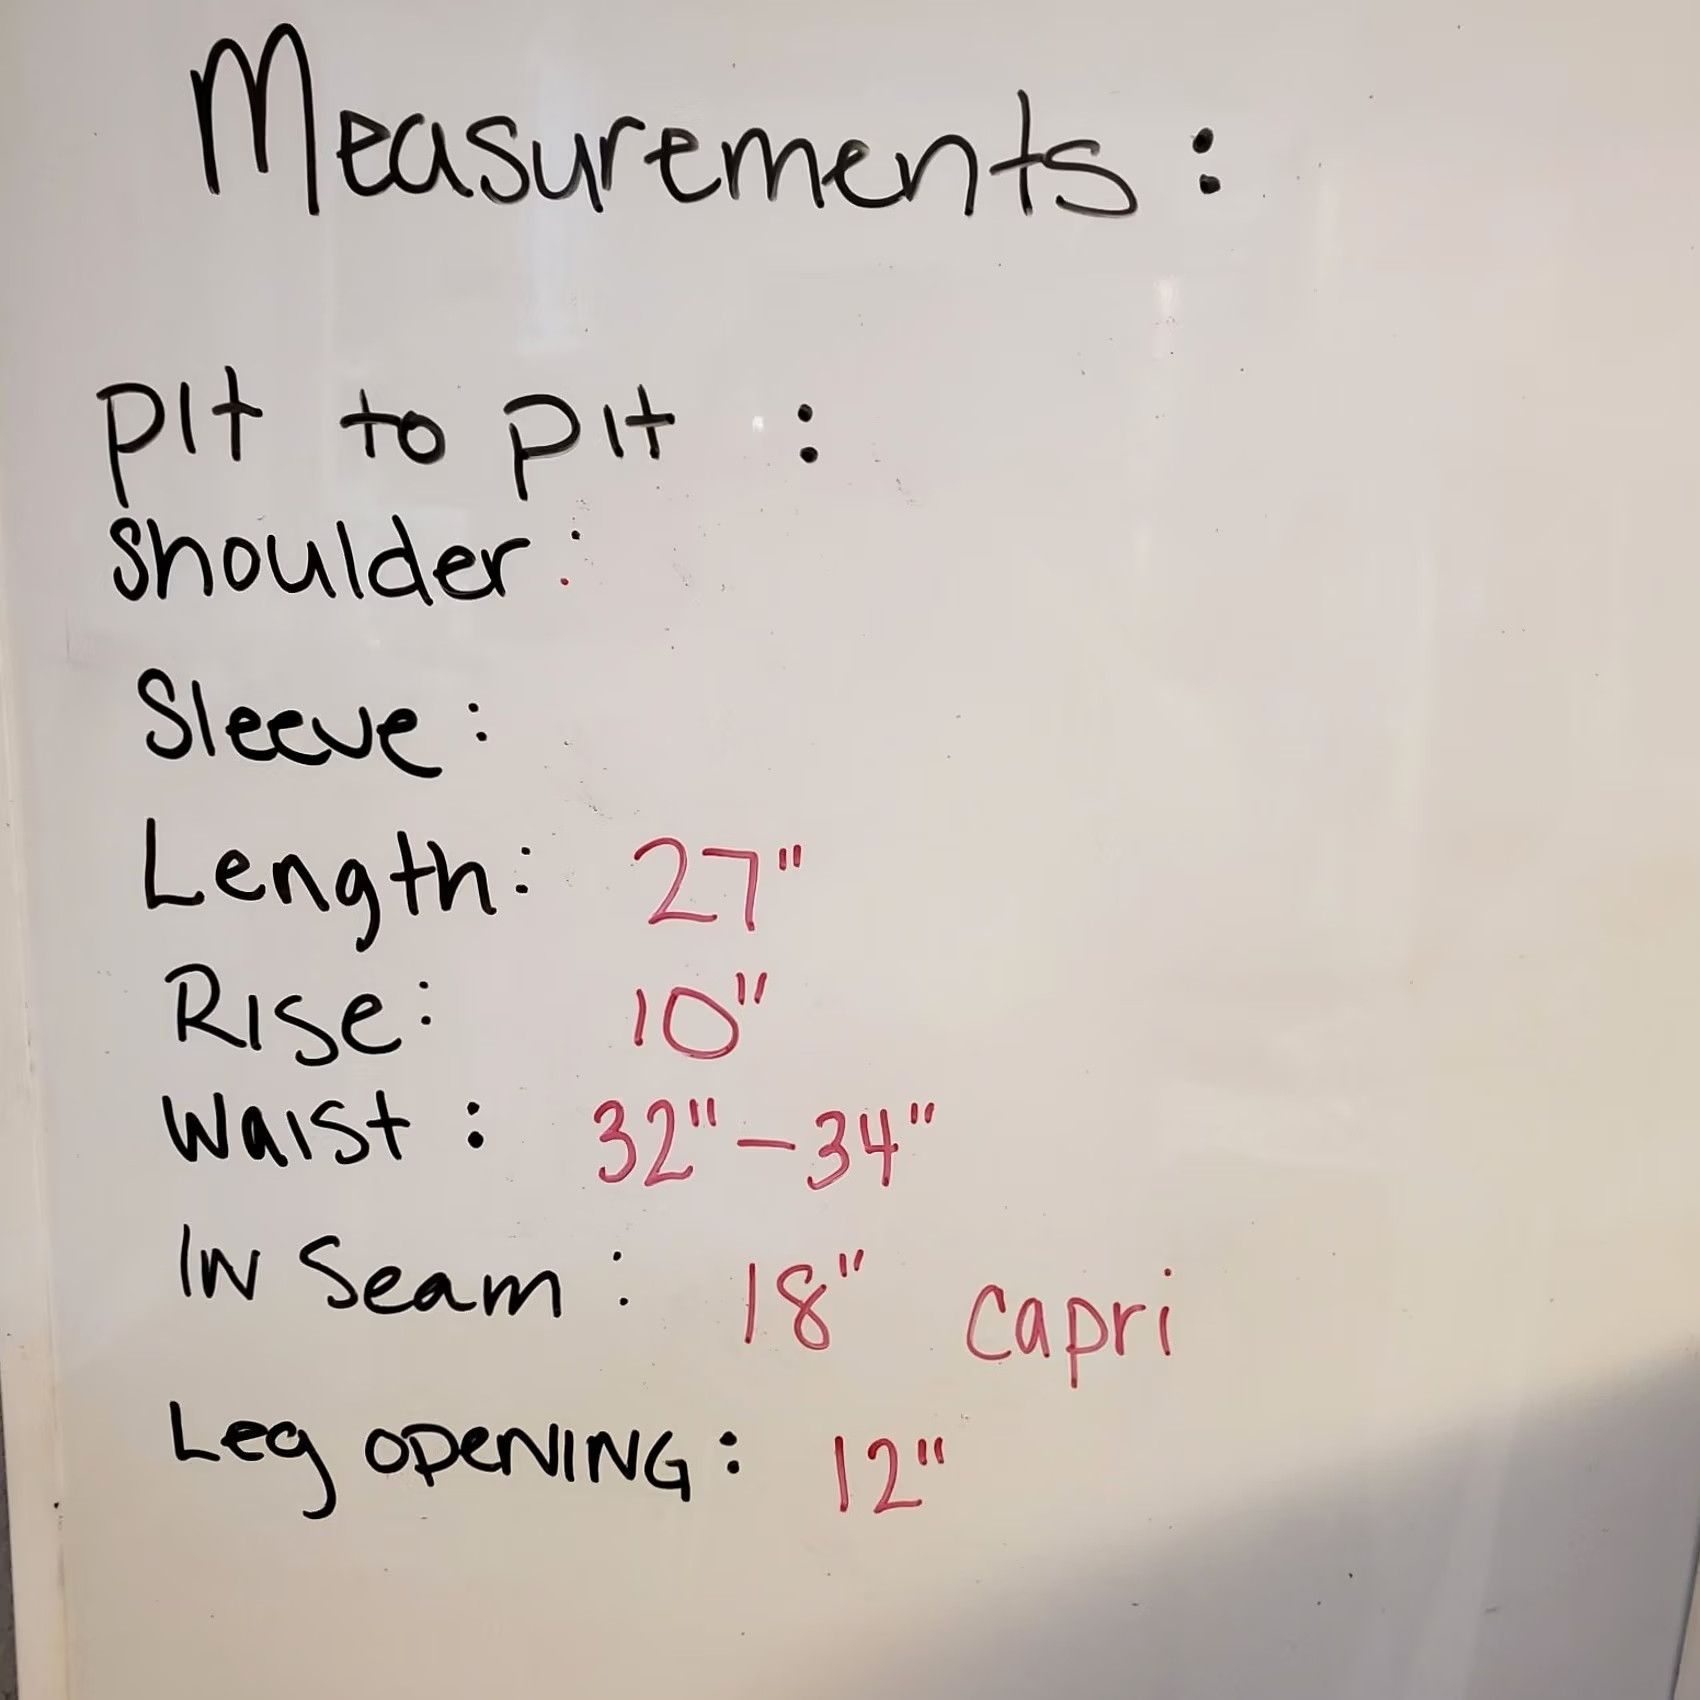 Measurements:
pit to pit :
shoulder:
Sleeve:
Length: 27"
Rise: 10"
Waist: 32"-34"
IN Seam: 18" capri
Leg OPENING: 12"